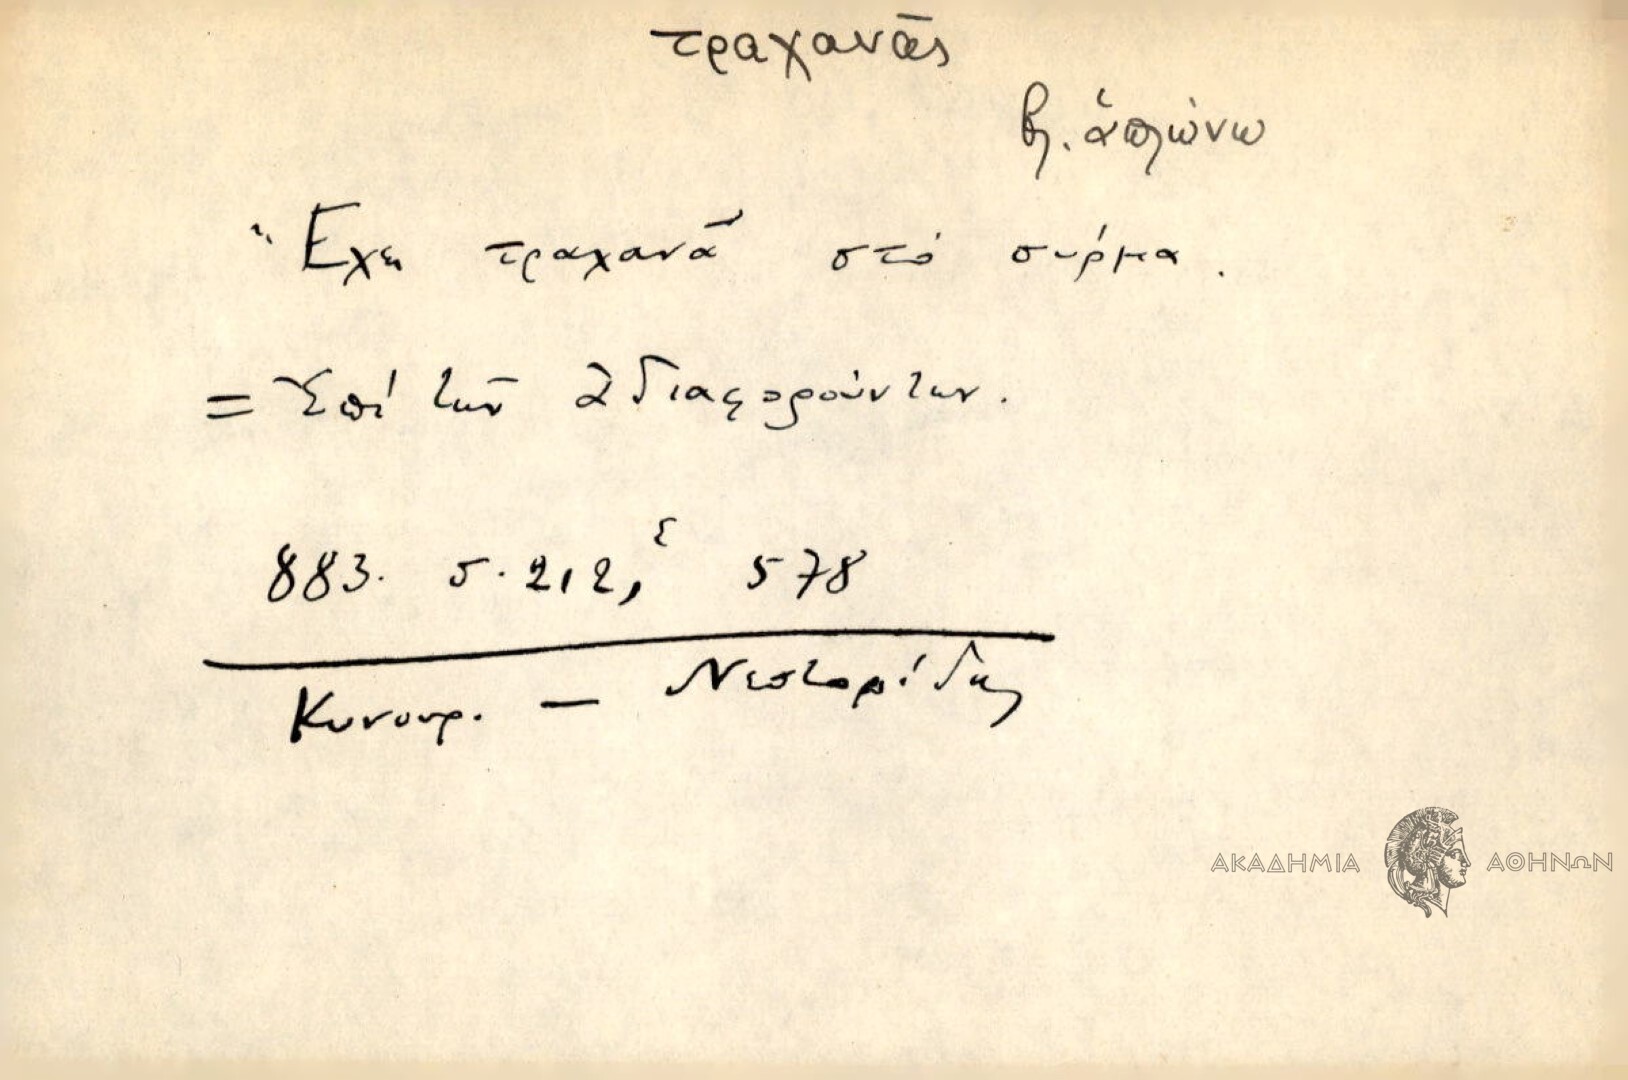 τραχανᾶς
βλ. ἁπλώνω
Ἔχει τραχανᾶ στό σύρμα.
= Ἐπί τῶν ἀδιαφορούντων.
883. σ. 212, ε 578
Κυνουρ. — Νεστορίδης
ΑΚΑΔΗΜΙΑ ΑΘΗΝΩΝ